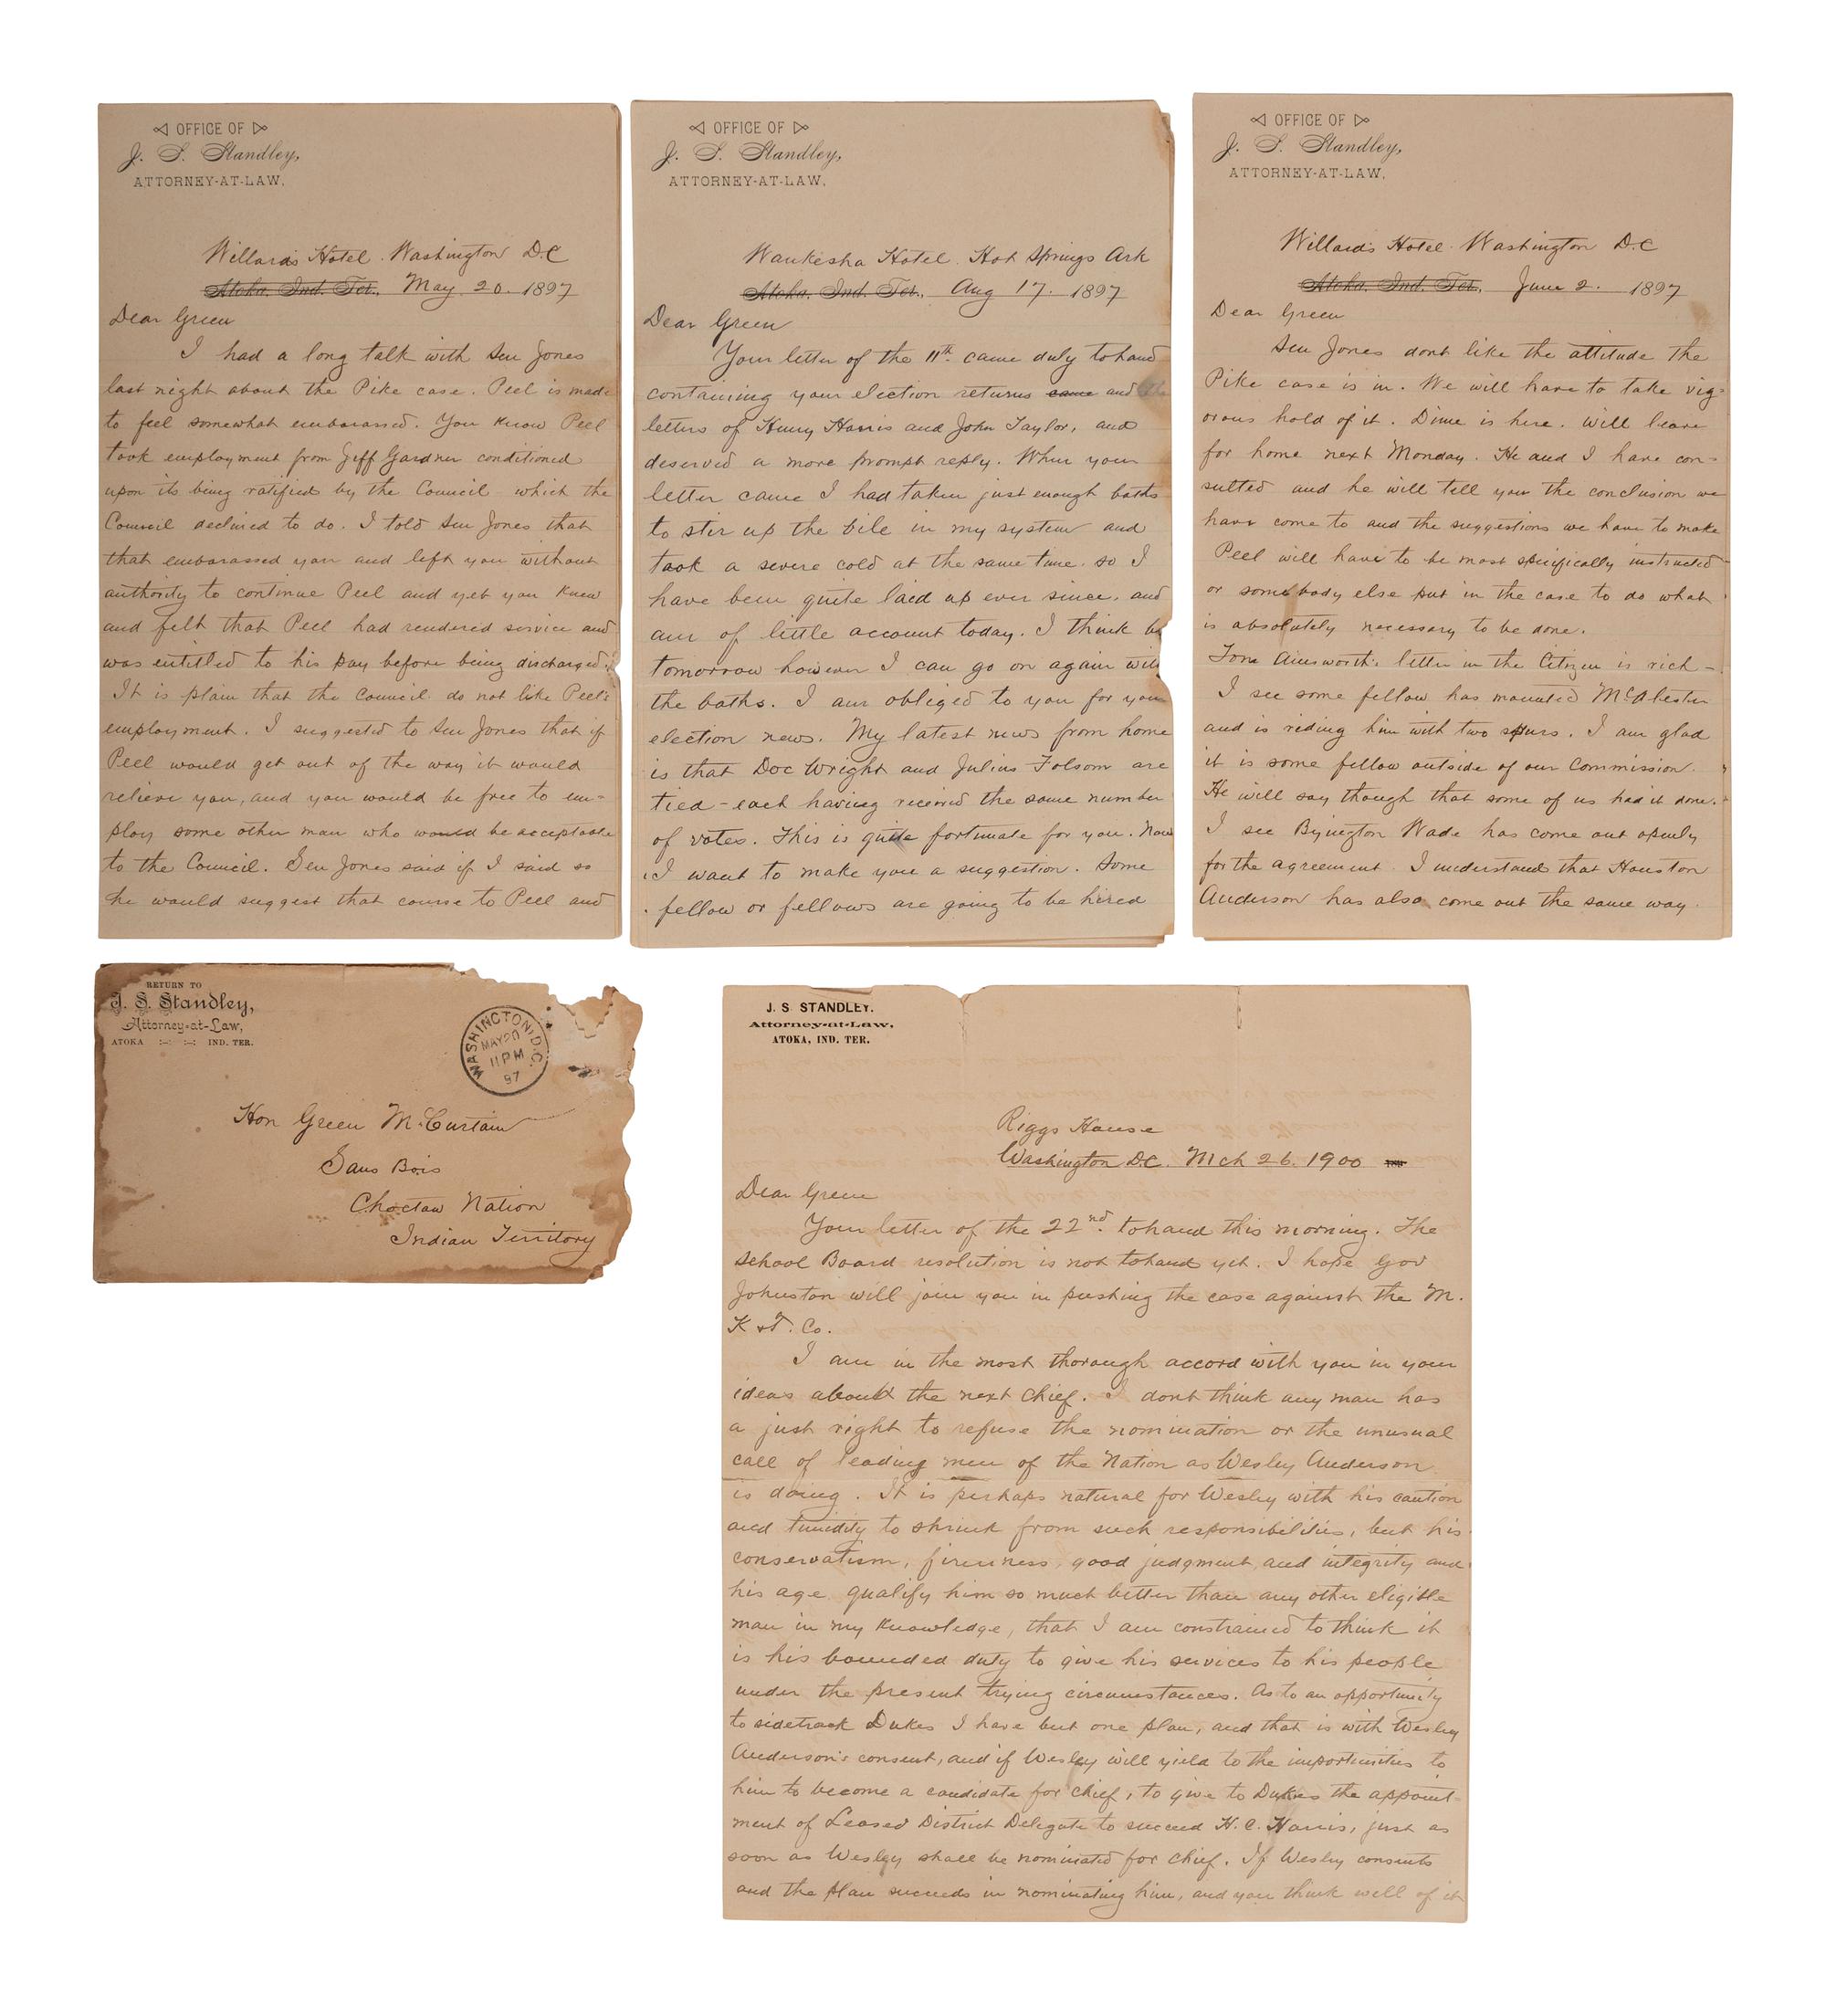 OFFICE OF
J. S. Standley,
ATTORNEY-AT-LAW,
Willards Hotel. Washington D.C
Atoka, Ind. Ter., May 20. 1897
Dear Green
I had a long talk with Sen Jones
last night about the Pike case. Peel is made
to feel somewhat embarassed. You know Peel
took employment from Jeff Gardner conditioned
upon its being ratified by the Council which the
Council declined to do. I told Sen Jones that
that embarassed you and left you without
authority to continue Peel and yet you knew
and felt that Peel had rendered service and
was entitled to his pay before being discharged.
It is plain that the Council do not like Peel's
employment. I suggested to Sen Jones that if
Peel would get out of the way it would
relieve you, and you would be free to em-
ploy some other man who would be acceptable
to the Council. Sen Jones said if I said so
he would suggest that course to Peel and
OFFICE OF
J. S. Standley,
ATTORNEY-AT-LAW,
Waukesha Hotel. Hot Springs Ark
Atoka, Ind. Ter., Aug 17. 1897
Dear Green
Your letter of the 11th. came duly to hand
containing your election returns came and the
letters of Henry Harris and John Taylor, and
deserved a more prompt reply. When your
letter came I had taken just enough baths
to stir up the bile in my system and
took a severe cold at the same time. so I
have been quite laid up ever since, and
am of little account today. I think by
tomorrow however I can go on again with
the baths. I am obliged to you for your
election news. My latest news from home
is that Doc Wright and Julius Folsom are
tied - each having received the same number
of votes. This is quite fortunate for you. Now
I want to make you a suggestion. Some
fellow or fellows are going to be hired
OFFICE OF
J. S. Standley,
ATTORNEY-AT-LAW,
Willards Hotel. Washington D.C
Atoka, Ind. Ter., June 2. 1897
Dear Green
Sen Jones dont like the attitude the
Pike case is in. We will have to take vig-
orous hold of it. Dime is here. Will leave
for home next Monday. He and I have con-
sulted and he will tell you the conclusion we
have come to and the suggestions we have to make
Peel will have to be most specifically instructed
or somebody else put in the case to do what
is absolutely necessary to be done.
Tom Ainsworth's letter in the Citizen is rich -
I see some fellow has mounted McAlester
and is riding him with two spurs. I am glad
it is some fellow outside of our Commission.
He will say though that some of us had it done.
I see Byington Wade has come out openly
for the agreement. I understand that Houston
Anderson has also come out the same way.
RETURN TO
J. S. Standley,
Attorney-at-Law,
ATOKA IND. TER.
WASHINGTON, D.C.
MAY 20
11 PM
97
Hon Green McCurtain
Sans Bois
Choctaw Nation
Indian Territory
J. S. STANDLEY.
Attorney-at-Law,
ATOKA, IND. TER.
Riggs House
Washington D.C. Mch 26. 1900
Dear Green
Your letter of the 22nd. to hand this morning. The
school Board resolution is not to hand yet. I hope Gov
Johnston will join you in pushing the case against the M.
K & T. Co.
I am in the most thorough accord with you in your
ideas about the next Chief. I dont think any man has
a just right to refuse the nomination or the unusual
call of leading men of the Nation as Wesley Anderson
is doing. It is perhaps natural for Wesley with his caution
and timidity to shrink from such responsibilities, but his
conservatism, firmness, good judgment, and integrity and
his age qualify him so much better than any other eligible
man in my knowledge, that I am constrained to think it
is his bounded duty to give his services to his people
under the present trying circumstances. As to an opportunity
to sidetrack Dukes I have but one plan, and that is with Wesley
Anderson's consent, and if Wesley will yield to the importunities to
him to become a candidate for Chief, to give to Dukes the appoint-
ment of Leased District Delegate to succeed H. C. Harris, just as
soon as Wesley shall be nominated for Chief. If Wesley consents
and the plan succeeds in nominating him, and you think well of it